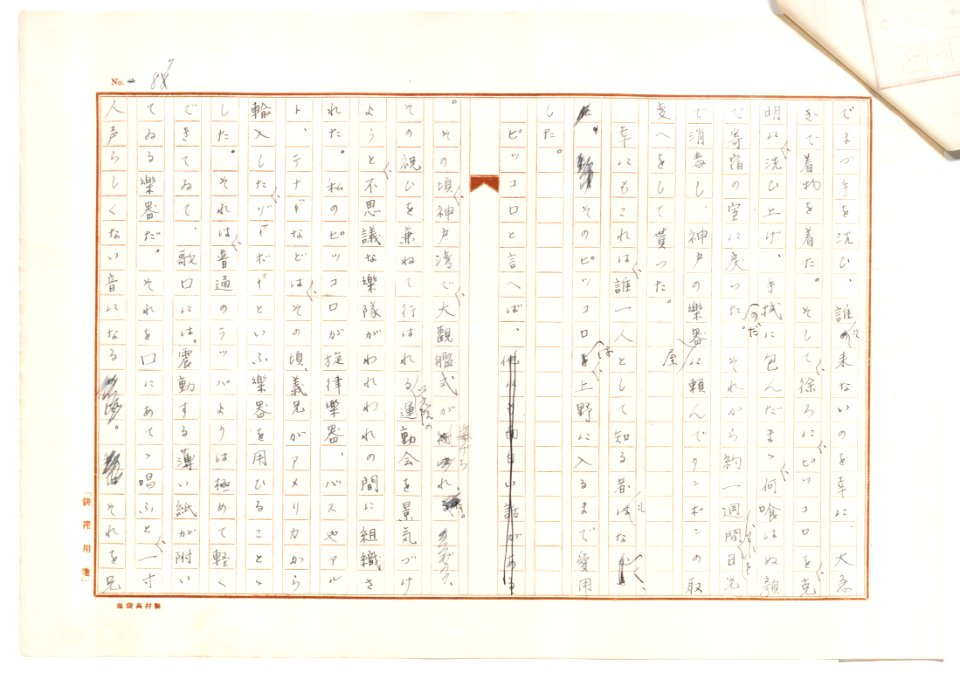 No. 87
でまづ手を洗ひ、誰も来ないのを幸に、大急
ぎで着物を着た。そして徐ろにピッコロを克
明に洗ひ上げ、手拭に包んだまゝ何喰はぬ顔
で寄宿の室に戻つたのだ。それから約一週間目
で消毒し、神戸の樂器屋に頼んでタンポンの取
変へをして貰つた。
幸にもこれは誰一人として知る者はなく、
そのピッコロは上野に入るまで愛用
した。
ピッコロと言へば、
その頃神戸湾で大觀艦式が
その祝ひを兼ねて行はれる学院の運動会を景気づけ
ようと不思議な樂隊がわれわれの間に組織さ
れた。私のピッコロが旋律樂器、バスやアル
ト、テナーなどはその頃、義兄がアメリカから
輸入したヅーボーといふ樂器を用ひることゝ
した。それは普通のラッパよりは極めて軽く
できてゐて、歌口には震動する薄い紙が附い
てゐる樂器だ。それを口にあてゝ唱ふと一寸
人声らしくない音になる。それを兄
「耕筰用箋」